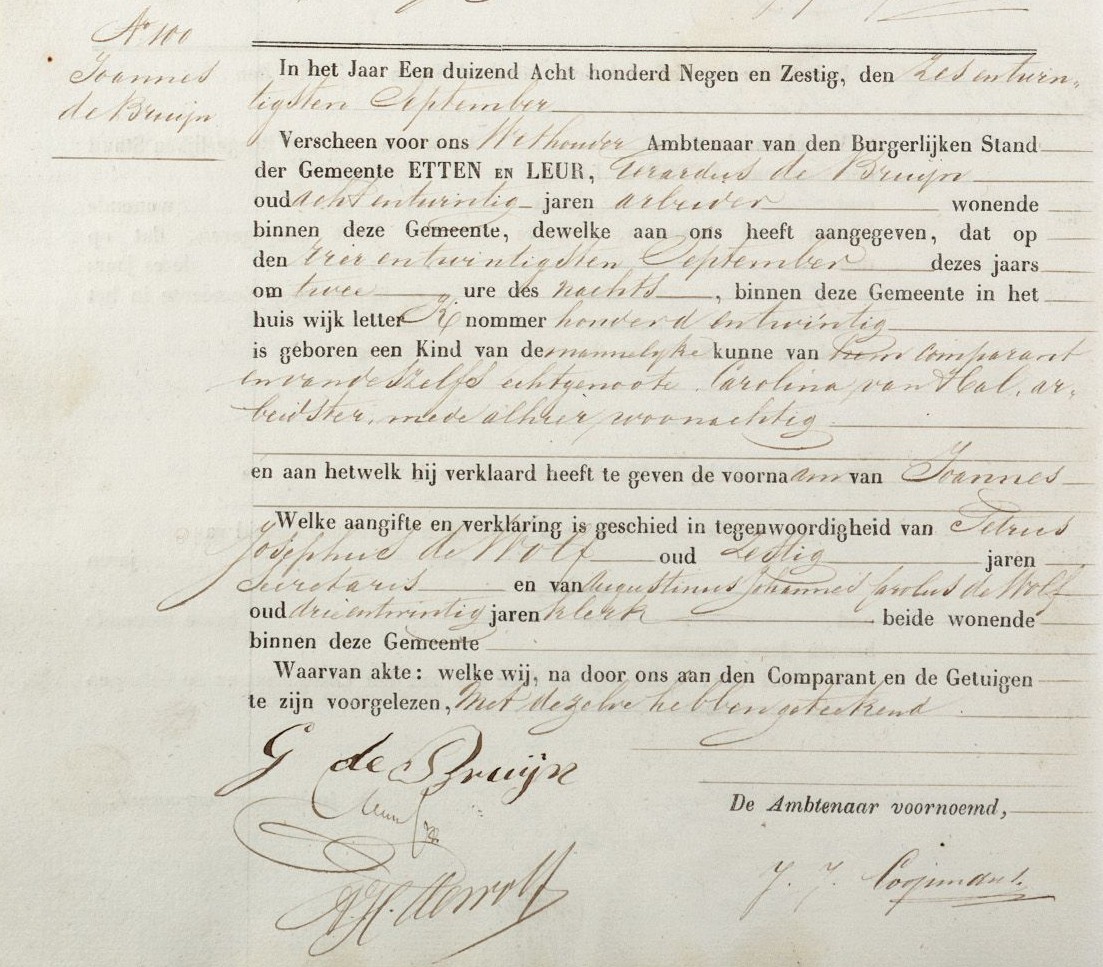 No 100
Joannes
de Bruijn
In het Jaar Een duizend Acht honderd Negen en Zestig, den zes entwin-
tigsten September
Verscheen voor ons Wethouder Ambtenaar van den Burgerlijken Stand
der Gemeente ETTEN EN LEUR, Gerardus de Bruijn
oud acht entwintig jaren arbeider wonende
binnen deze Gemeente, dewelke aan ons heeft aangegeven, dat op
den vier entwintigsten September dezes jaars
om twee ure des nachts, binnen deze Gemeente in het
huis wijk letter nommer honderd entwintig
is geboren een Kind van de mannelyke kunne van hem comparant
en van deszelfs echtgenoote Carolina van Hal, ar-
beidster, mede alhier woonachtig
en aan hetwelk hij verklaard heeft te geven de voornaam van Joannes
Welke aangifte en verklaring is geschied in tegenwoordigheid van Petrus
Josephus de Wolf oud Zestig jaren
Secretaris en van Augustinus Johannes Carolus de Wolf
oud drieentwintig jaren klerk beide wonende
binnen deze Gemeente
Waarvan akte: welke wij, na door ons aan den Comparant en de Getuigen
te zijn voorgelezen, met dezelve hebben geteekend.
G de Bruijn
De Ambtenaar voornoemd,
J. J. Coopmans